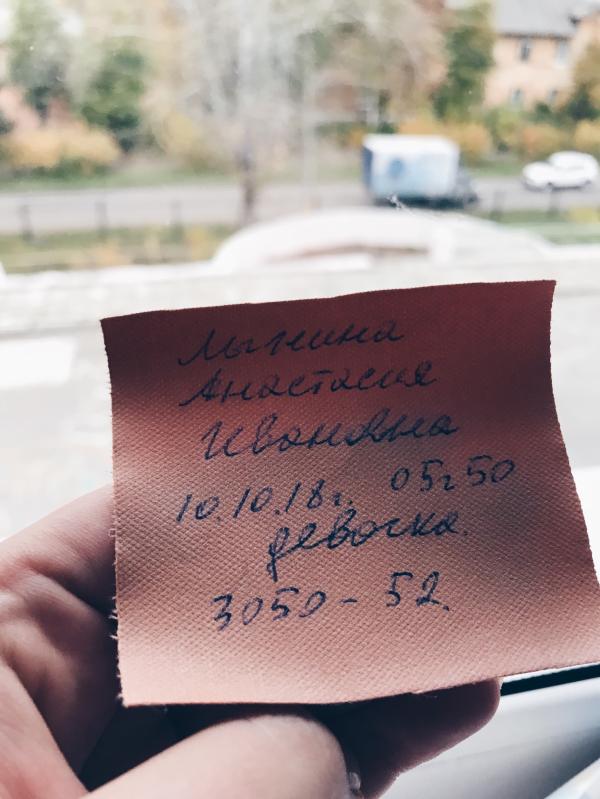 Анастасия
Ивановна
10.10.18г. 05ч50
девочка.
3050-52.